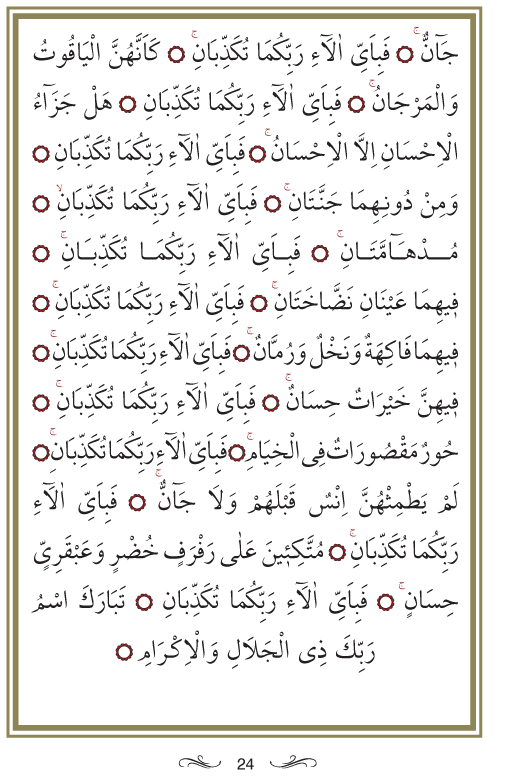 جَٓانٌّۚ ۝ فَبِاَيِّ اٰلَٓاءِ رَبِّكُمَا تُكَذِّبَانِۚ ۝ كَاَنَّهُنَّ الْيَاقُوتُ
وَالْمَرْجَانُۚ ۝ فَبِاَيِّ اٰلَٓاءِ رَبِّكُمَا تُكَذِّبَانِ ۝ هَلْ جَزَٓاءُ
الْاِحْسَانِ اِلَّا الْاِحْسَانُۚ ۝ فَبِاَيِّ اٰلَٓاءِ رَبِّكُمَا تُكَذِّبَانِ ۝
وَمِنْ دُونِهِمَا جَنَّتَانِۚ ۝ فَبِاَيِّ اٰلَٓاءِ رَبِّكُمَا تُكَذِّبَانِۙ ۝
مُدْهَٓامَّتَانِۚ ۝ فَبِاَيِّ اٰلَٓاءِ رَبِّكُمَا تُكَذِّبَانِۚ ۝
ف۪يهِمَا عَيْنَانِ نَضَّاخَتَانِۚ ۝ فَبِاَيِّ اٰلَٓاءِ رَبِّكُمَا تُكَذِّبَانِۚ ۝
ف۪يهِمَا فَاكِهَةٌ وَنَخْلٌ وَرُمَّانٌۚ ۝ فَبِاَيِّ اٰلَٓاءِ رَبِّكُمَا تُكَذِّبَانِۚ ۝
ف۪يهِنَّ خَيْرَاتٌ حِسَانٌۚ ۝ فَبِاَيِّ اٰلَٓاءِ رَبِّكُمَا تُكَذِّبَانِۚ ۝
حُورٌ مَقْصُورَاتٌ فِي الْخِيَامِۚ ۝ فَبِاَيِّ اٰلَٓاءِ رَبِّكُمَا تُكَذِّبَانِۚ ۝
لَمْ يَطْمِثْهُنَّ اِنْسٌ قَبْلَهُمْ وَلَا جَٓانٌّۚ ۝ فَبِاَيِّ اٰلَٓاءِ
رَبِّكُمَا تُكَذِّبَانِۚ ۝ مُتَّكِـ۪ٔينَ عَلٰى رَفْرَفٍ خُضْرٍ وَعَبْقَرِيٍّ
حِسَانٍۚ ۝ فَبِاَيِّ اٰلَٓاءِ رَبِّكُمَا تُكَذِّبَانِ ۝ تَبَارَكَ اسْمُ
رَبِّكَ ذِي الْجَلَالِ وَالْاِكْرَامِ ۝
24